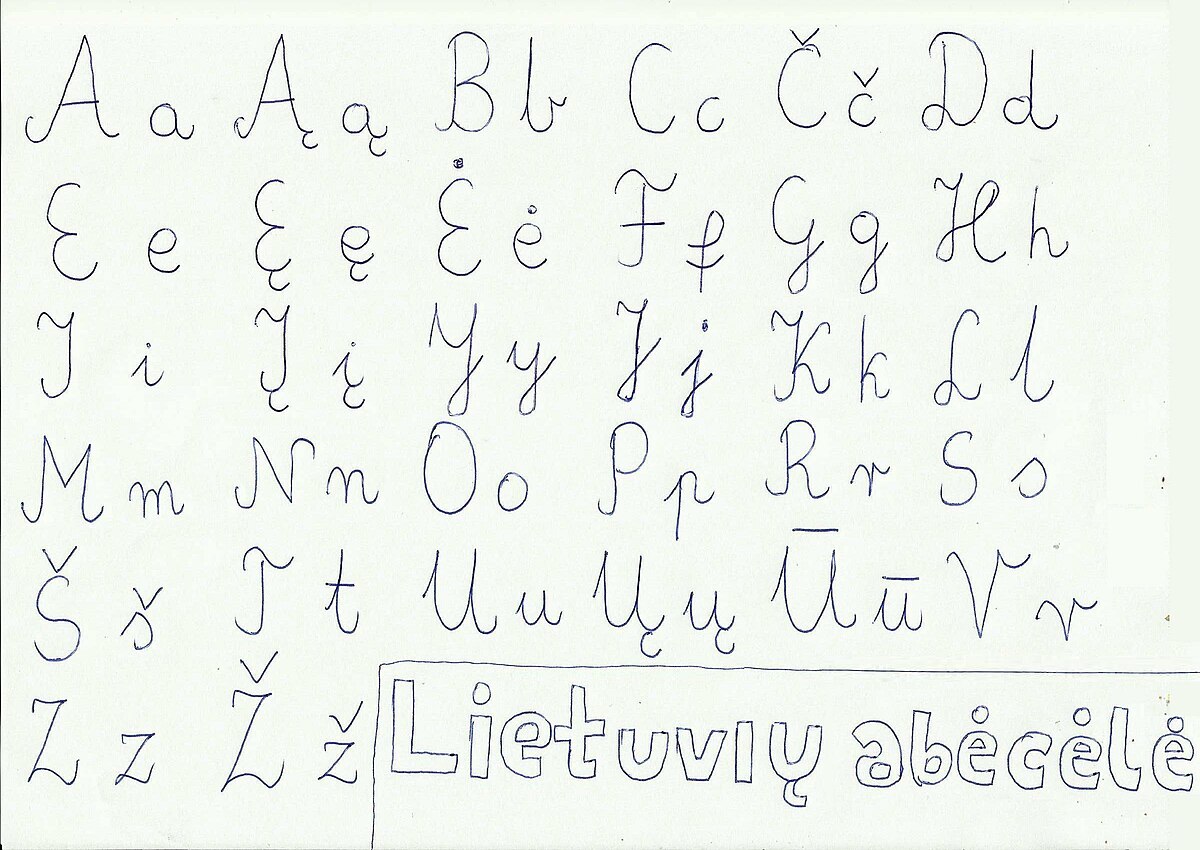 A a Ą ą B b C c Č č D d
E e Ę ę Ė ė F f G g H h
I i Į į Y y J j K k L l
M m N n O o P p R r S s
Š š T t U u Ų ų Ū ū V v
Z z Ž ž
Lietuvių abėcėlė